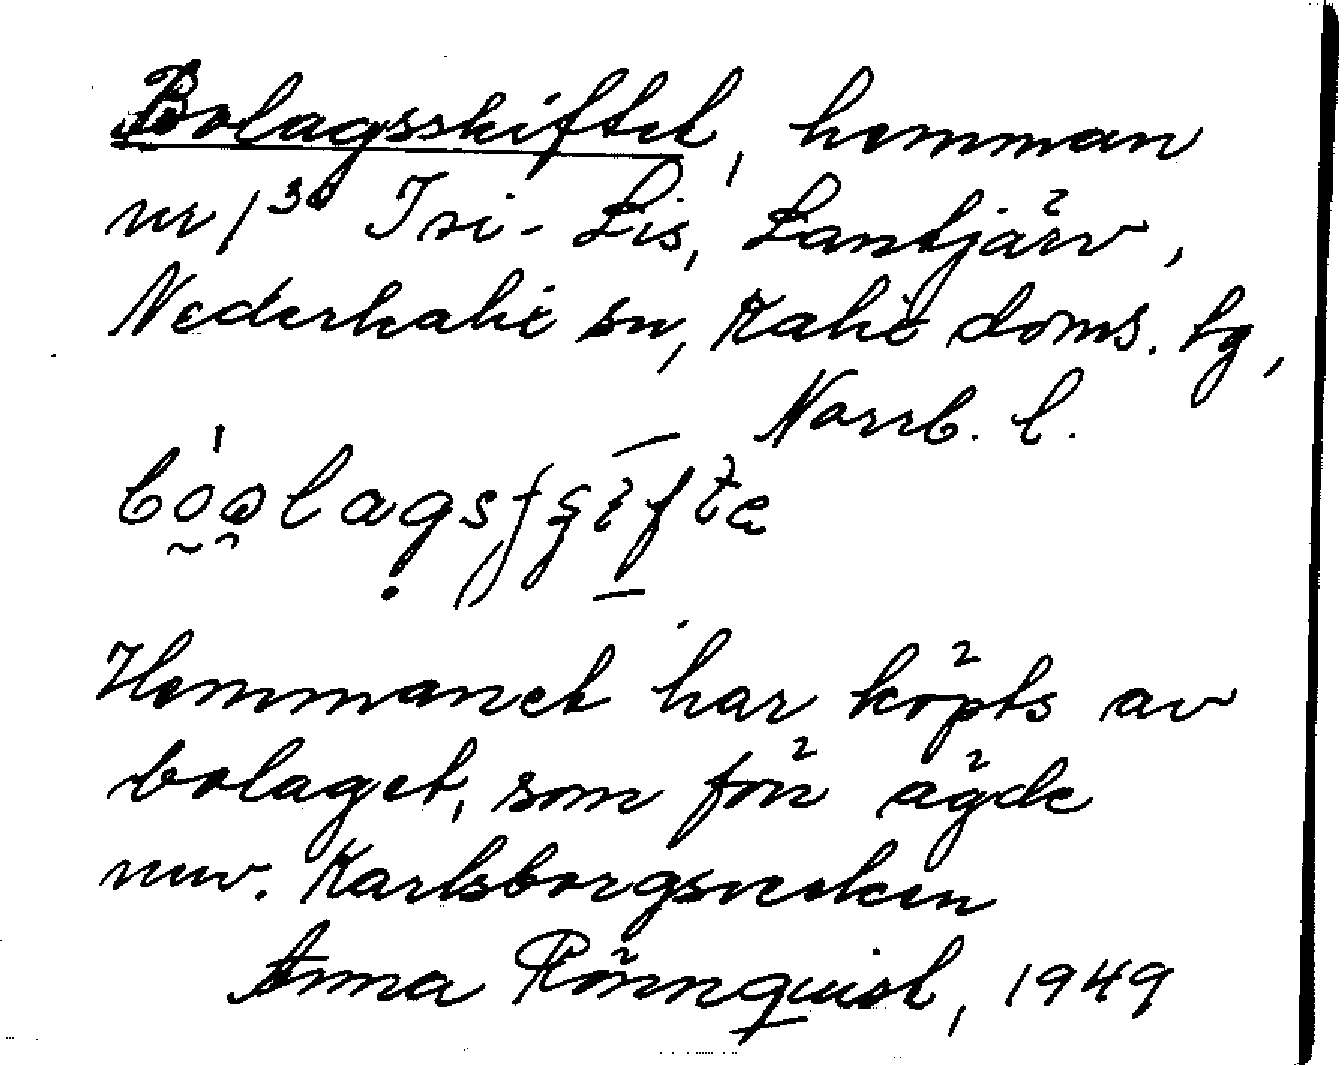 Bolagsskiftet, hemman
nr 1³⁰ Isi-Lis, Lantjärv,
Nederkalix sn, Kalix doms. tg,
Norrb. l.
Hemmanet har köpts av
bolaget, som förr ägde
nuv. Karlsborgsverken
Anna Rönnquist, 1949